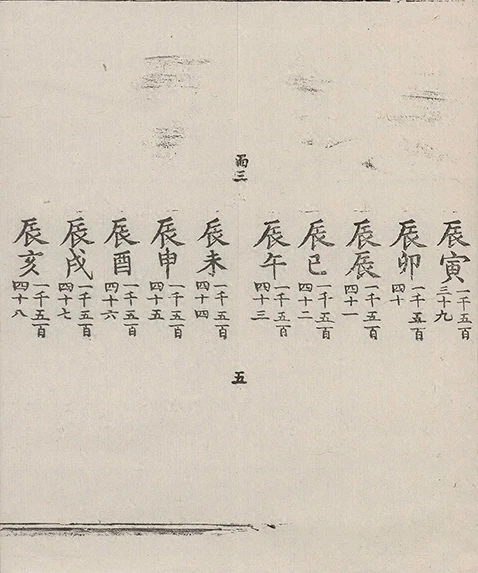 辰寅
一千五百
三十九
辰卯
一千五百
四十
辰辰
一千五百
四十一
辰巳
一千五百
四十二
辰午
一千五百
四十三
三
五
辰未
一千五百
四十四
辰申
一千五百
四十五
辰酉
一千五百
四十六
辰戌
一千五百
四十七
辰亥
一千五百
四十八